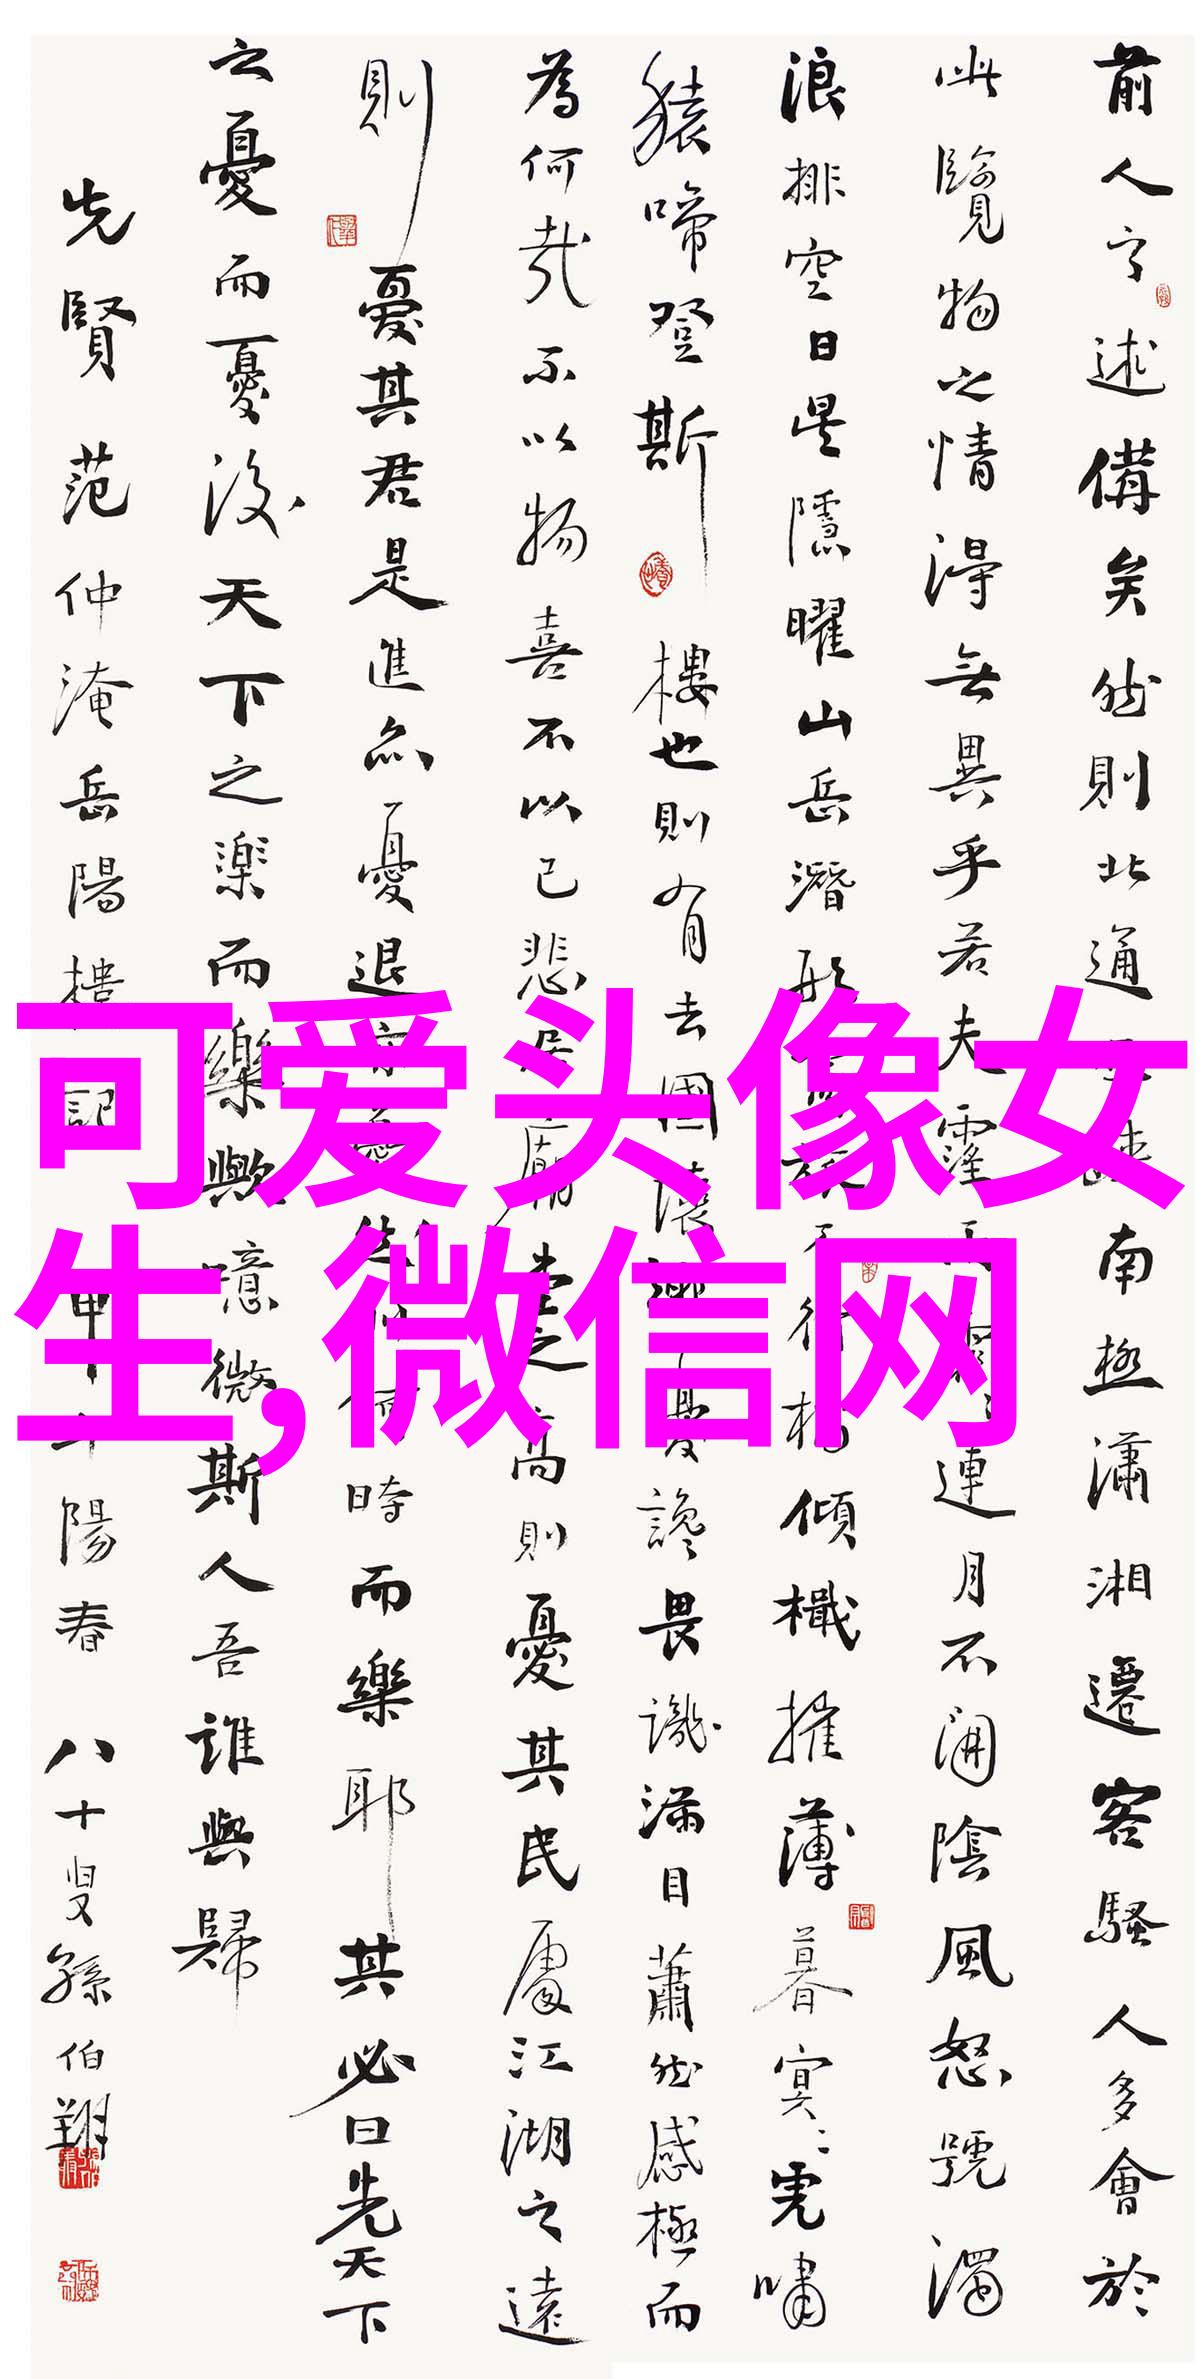 前人之述備矣然則北通巫峽南極瀟湘遷客騷人多會於
此覽物之情得無異乎若夫霪雨霏霏連月不開陰風怒號濁
浪排空日星隱曜山岳潛形商旅不行檣傾檝摧薄暮冥冥虎嘯
猿啼登斯樓也則有去國懷鄉憂讒畏譏滿目蕭然感極而
為何哉不以物喜不以己悲居廟堂之高則憂其民處江湖之遠
則憂其君是進亦憂退亦憂然則何時而樂耶其必曰先天下
之憂而憂後天下之樂而樂歟噫微斯人吾誰與歸
先賢范仲淹岳陽樓記 陽春 八十叟孫伯翔
可爱头像女
生,微信网